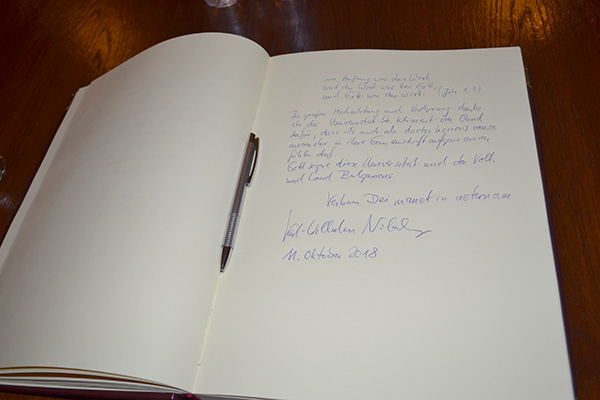 Im Anfang war das Wort,
und das Wort war bei Gott,
und Gott war das Wort. (Joh 1,1)
In großer Hochachtung und Verehrung danke
ich der Universität St. Kliment von Ohrid
dafür, dass ich mich als doctor honoris causa
in ihre Gemeinschaft aufgenommen
fühlen darf.
Gott segne diese Universität und das Volk
und Land Bulgariens.
Verbum Dei manet in aeternum
Karl-Wilhelm Niebuhr
11. Oktober 2018